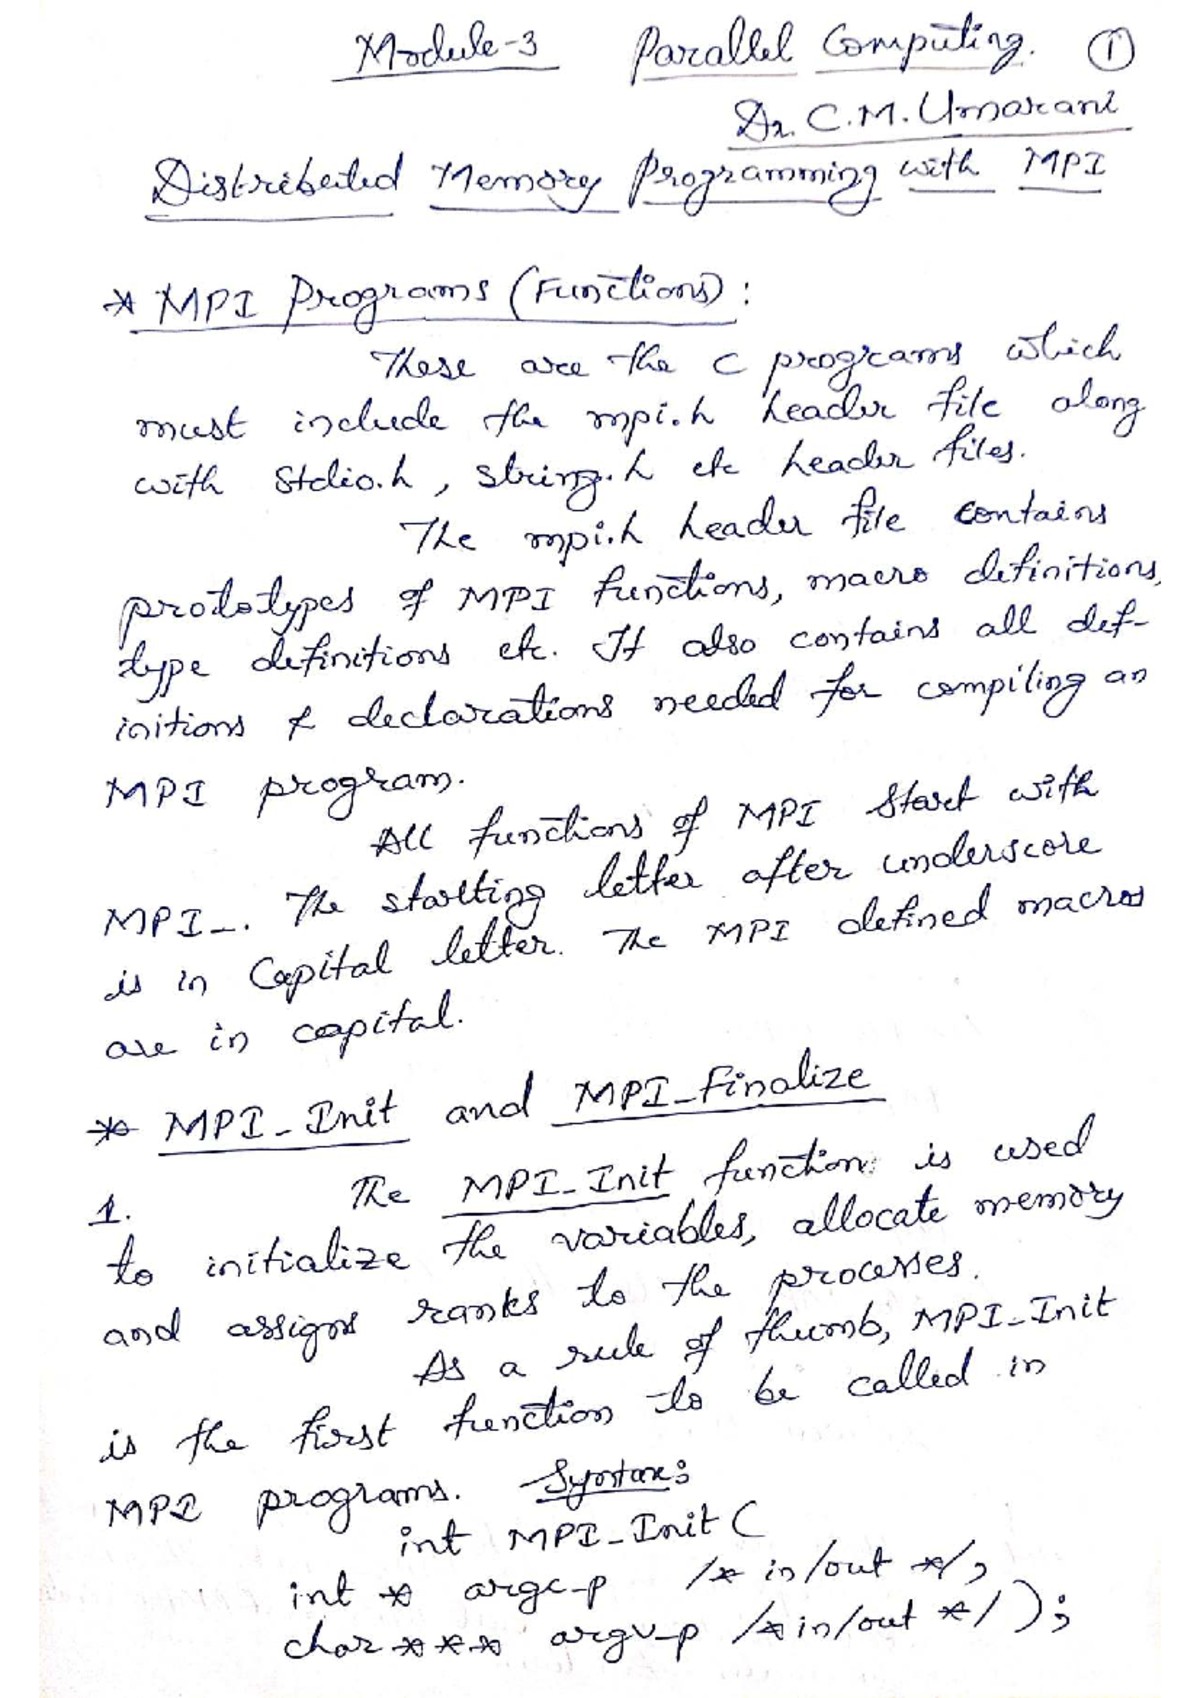 Module-3 Parallel Computing. 1
Dr. C.M. Umarani
Distributed Memory Programming with MPI
* MPI Programs (Functions) :
These are the C programs which
must include the mpi.h header file along
with stdio.h, string.h etc header files.
The mpi.h header file contains
prototypes of MPI functions, macro definitions,
type definitions etc. It also contains all def-
initions & declarations needed for compiling an
MPI program.
All functions of MPI start with
MPI_. The starting letter after underscore
is in Capital letter. The MPI defined macros
are in capital.
* MPI_Init and MPI_Finalize
1. The MPI_Init function is used
to initialize the variables, allocate memory
and assigns ranks to the processes.
As a rule of thumb, MPI_Init
is the first function to be called in
MPI programs. Syntax:
int MPI_Init (
int * argc-p /* in/out */,
char *** argv-p /* in/out */ );